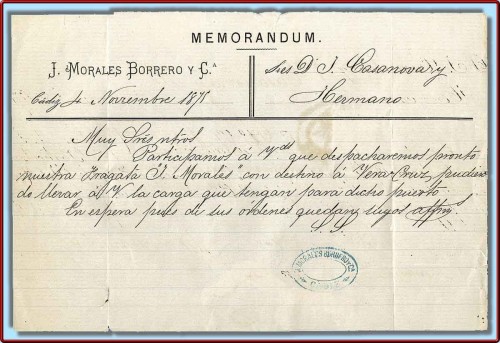 MEMORANDUM.
J. MORALES BORRERO Y C.ª
Sres D. J. Casanova y
Hermano
Cádiz 4 Noviembre 1875
Muy Sres ntros
Participamos á Vds que despacharemos pronto
nuestra Fragata "J. Morales" con destino á Vera Cruz, pudien-
do llevar á V la carga que tengan para dicho puerto.
En espera pues de sus ordenes quedan suyos affmos
S. S.